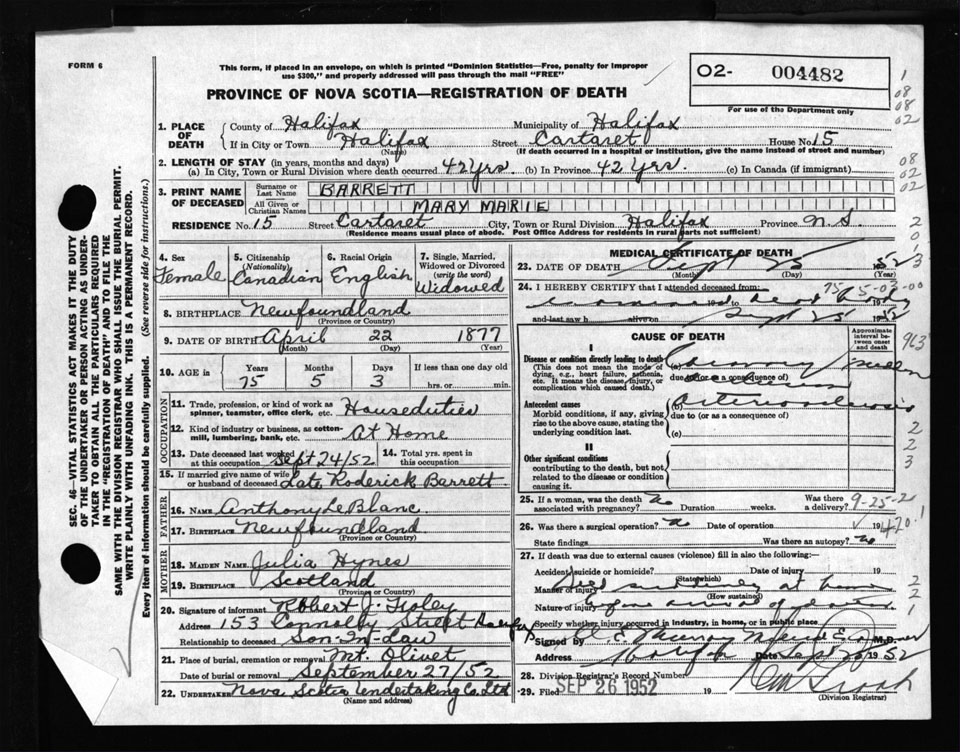 FORM 6
This form, if placed in an envelope, on which is printed "Dominion Statistics—Free, penalty for improper
use $300," and properly addressed will pass through the mail "FREE"
PROVINCE OF NOVA SCOTIA—REGISTRATION OF DEATH
02- 004482
For use of the Department only
1
08
08
02
1. PLACE OF DEATH
County of Halifax Municipality of Halifax
If in City or Town Halifax Street Cartaret House No. 15
(Name) (If death occurred in a hospital or institution, give the name instead of street and number)
2. LENGTH OF STAY (in years, months and days)
(a) In City, Town or Rural Division where death occurred 42 yrs. (b) In Province 42 yrs. (c) In Canada (if immigrant)
08
02
02
3. PRINT NAME OF DECEASED
Surname or Last Name BARRETT
All Given or Christian Names MARY MARIE
RESIDENCE No. 15 Street Cartaret City, Town or Rural Division Halifax Province N.S.
(Residence means usual place of abode. Post Office Address for residents in rural parts not sufficient)
2
0
1
3
4. Sex Female
5. Citizenship (Nationality) Canadian
6. Racial Origin English
7. Single, Married, Widowed or Divorced (write the word) Widowed
8. BIRTHPLACE Newfoundland
(Province or Country)
9. DATE OF BIRTH April 22 1877
(Month) (Day) (Year)
10. AGE in Years Months Days If less than one day old
75 5 3 hrs. or min.
OCCUPATION
11. Trade, profession, or kind of work as spinner, teamster, office clerk, etc. Houseduties
12. Kind of industry or business, as cotton-mill, lumbering, bank, etc. At Home
13. Date deceased last worked at this occupation Sept 24/52 14. Total yrs. spent in this occupation
15. If married give name of wife or husband of deceased Late Roderick Barrett
FATHER
16. Name Anthony LeBlanc
17. Birthplace Newfoundland
(Province or Country)
MOTHER
18. Maiden Name Julia Hynes
19. Birthplace Scotland
(Province or Country)
20. Signature of informant Robert J. Foley
Address 153 Connolly Street Halifax
Relationship to deceased Son-In-law
21. Place of burial, cremation or removal Mt. Olivet
Date of burial or removal September 27/52
22. Undertaker Nova Scotia Undertaking Co. Ltd
(Name and address)
MEDICAL CERTIFICATE OF DEATH
23. DATE OF DEATH Sept 25 1952
(Month) (Day)
24. I HEREBY CERTIFY that I attended deceased from: 75-5-03-00
examined dead body 19
and last saw h alive on Sept 25 1952
CAUSE OF DEATH
Approximate interval between onset and death
963
I
Disease or condition directly leading to death (a) Coronary
(This does not mean the mode of dying, e.g., heart failure, asthenia, etc. It means the disease, injury, or complication which caused death.)
due to (or as a consequence of)
Antecedent causes (b) Arteriosclerosis
Morbid conditions, if any, giving rise to the above cause, stating the underlying condition last.
due to (or as a consequence of)
(c)
II
Other significant conditions
contributing to the death, but not related to the disease or condition causing it.
2
2
3
25. If a woman, was the death associated with pregnancy? no Duration weeks. Was there a delivery?
26. Was there a surgical operation? no Date of operation 19
420.1
State findings Was there an autopsy? no
27. If death was due to external causes (violence) fill in also the following:
Accident, suicide or homicide? Date of injury 19
(State which)
Manner of injury Died suddenly at home
(How sustained)
Nature of injury before arrival of doctor
Specify whether injury occurred in industry, in home, or in public place
2
2
1
Signed by M.D.
Address Halifax Date Sept 26 1952
28. Division Registrar's Record Number
29. Filed SEP 26 1952 19
(Division Registrar)
SEC. 46—VITAL STATISTICS ACT MAKES IT THE DUTY
OF THE UNDERTAKER OR PERSON ACTING AS UNDER-
TAKER TO OBTAIN ALL THE PARTICULARS REQUIRED
IN THE "REGISTRATION OF DEATH" AND TO FILE THE
SAME WITH THE DIVISION REGISTRAR WHO SHALL ISSUE THE BURIAL PERMIT.
WRITE PLAINLY WITH UNFADING INK. THIS IS A PERMANENT RECORD.
Every item of information should be carefully supplied. (See reverse side for instructions.)